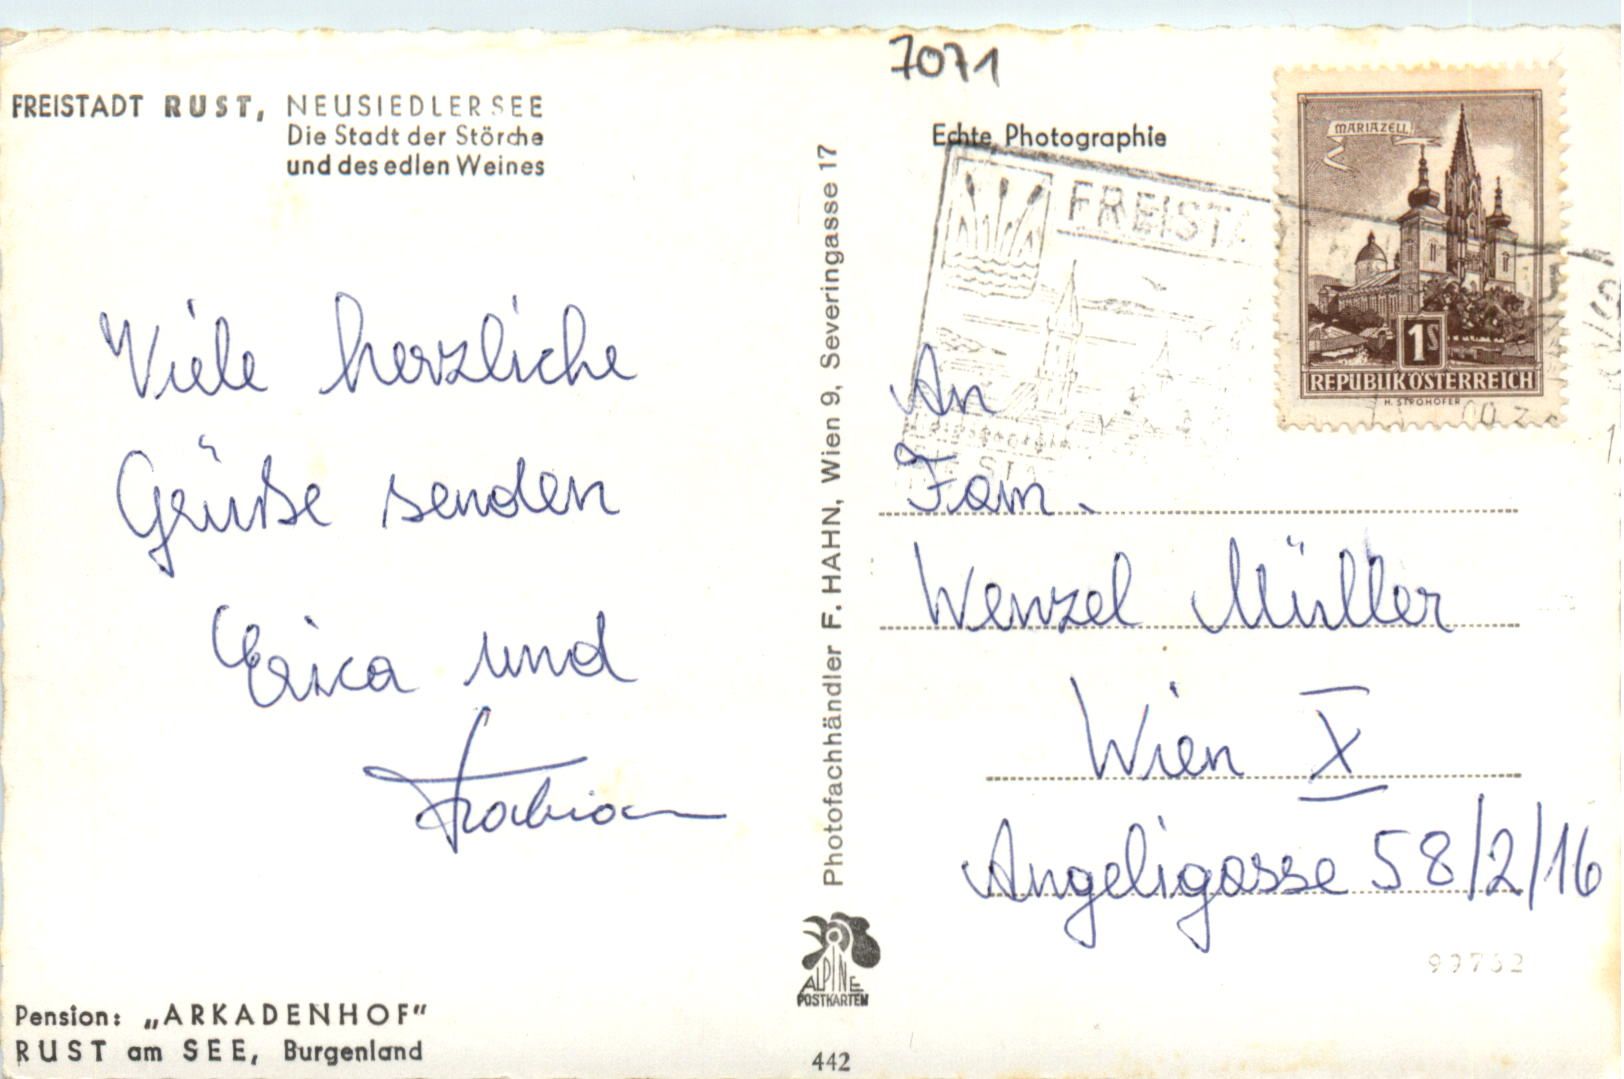 7071
FREISTADT RUST, NEUSIEDLERSEE
Die Stadt der Störche
und des edlen Weines
Viele herzliche
Grüße senden
Erica und
Pension: „ARKADENHOF"
RUST am SEE, Burgenland
Photofachhändler F. HAHN, Wien 9, Severingasse 17
ALPINE
POSTKARTEN
442
Echte Photographie
FREISTA
MARIAZELL
1S
REPUBLIK ÖSTERREICH
H. STROHOFER
An
Fam.
Wenzel Müller
Wien X
Angeligasse 58/2/16
99752